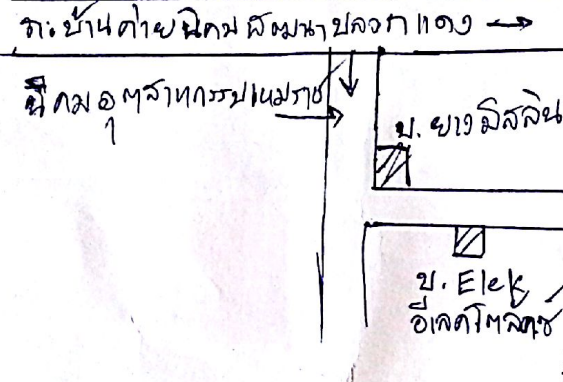 ถ.บ้านค่ายนิคมพัฒนาปลวกแดง
นิคมอุตสาหกรรมเหมราช
บ. ยางมิสลิน
บ. Elek
อีเลคโตลักซ์